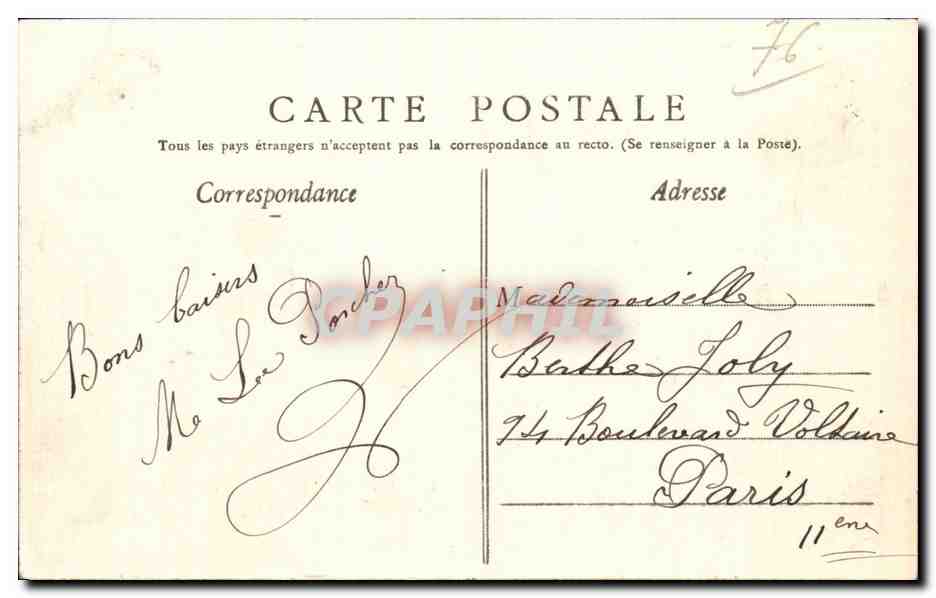 76
CARTE POSTALE
Tous les pays étrangers n'acceptent pas la correspondance au recto. (Se renseigner à la Poste).
Correspondance
Bons baisers
Me Porcher
Adresse
CPAPHIL
Mademoiselle
Berthe Joly
94 Boulevard Voltaire
Paris
11ème